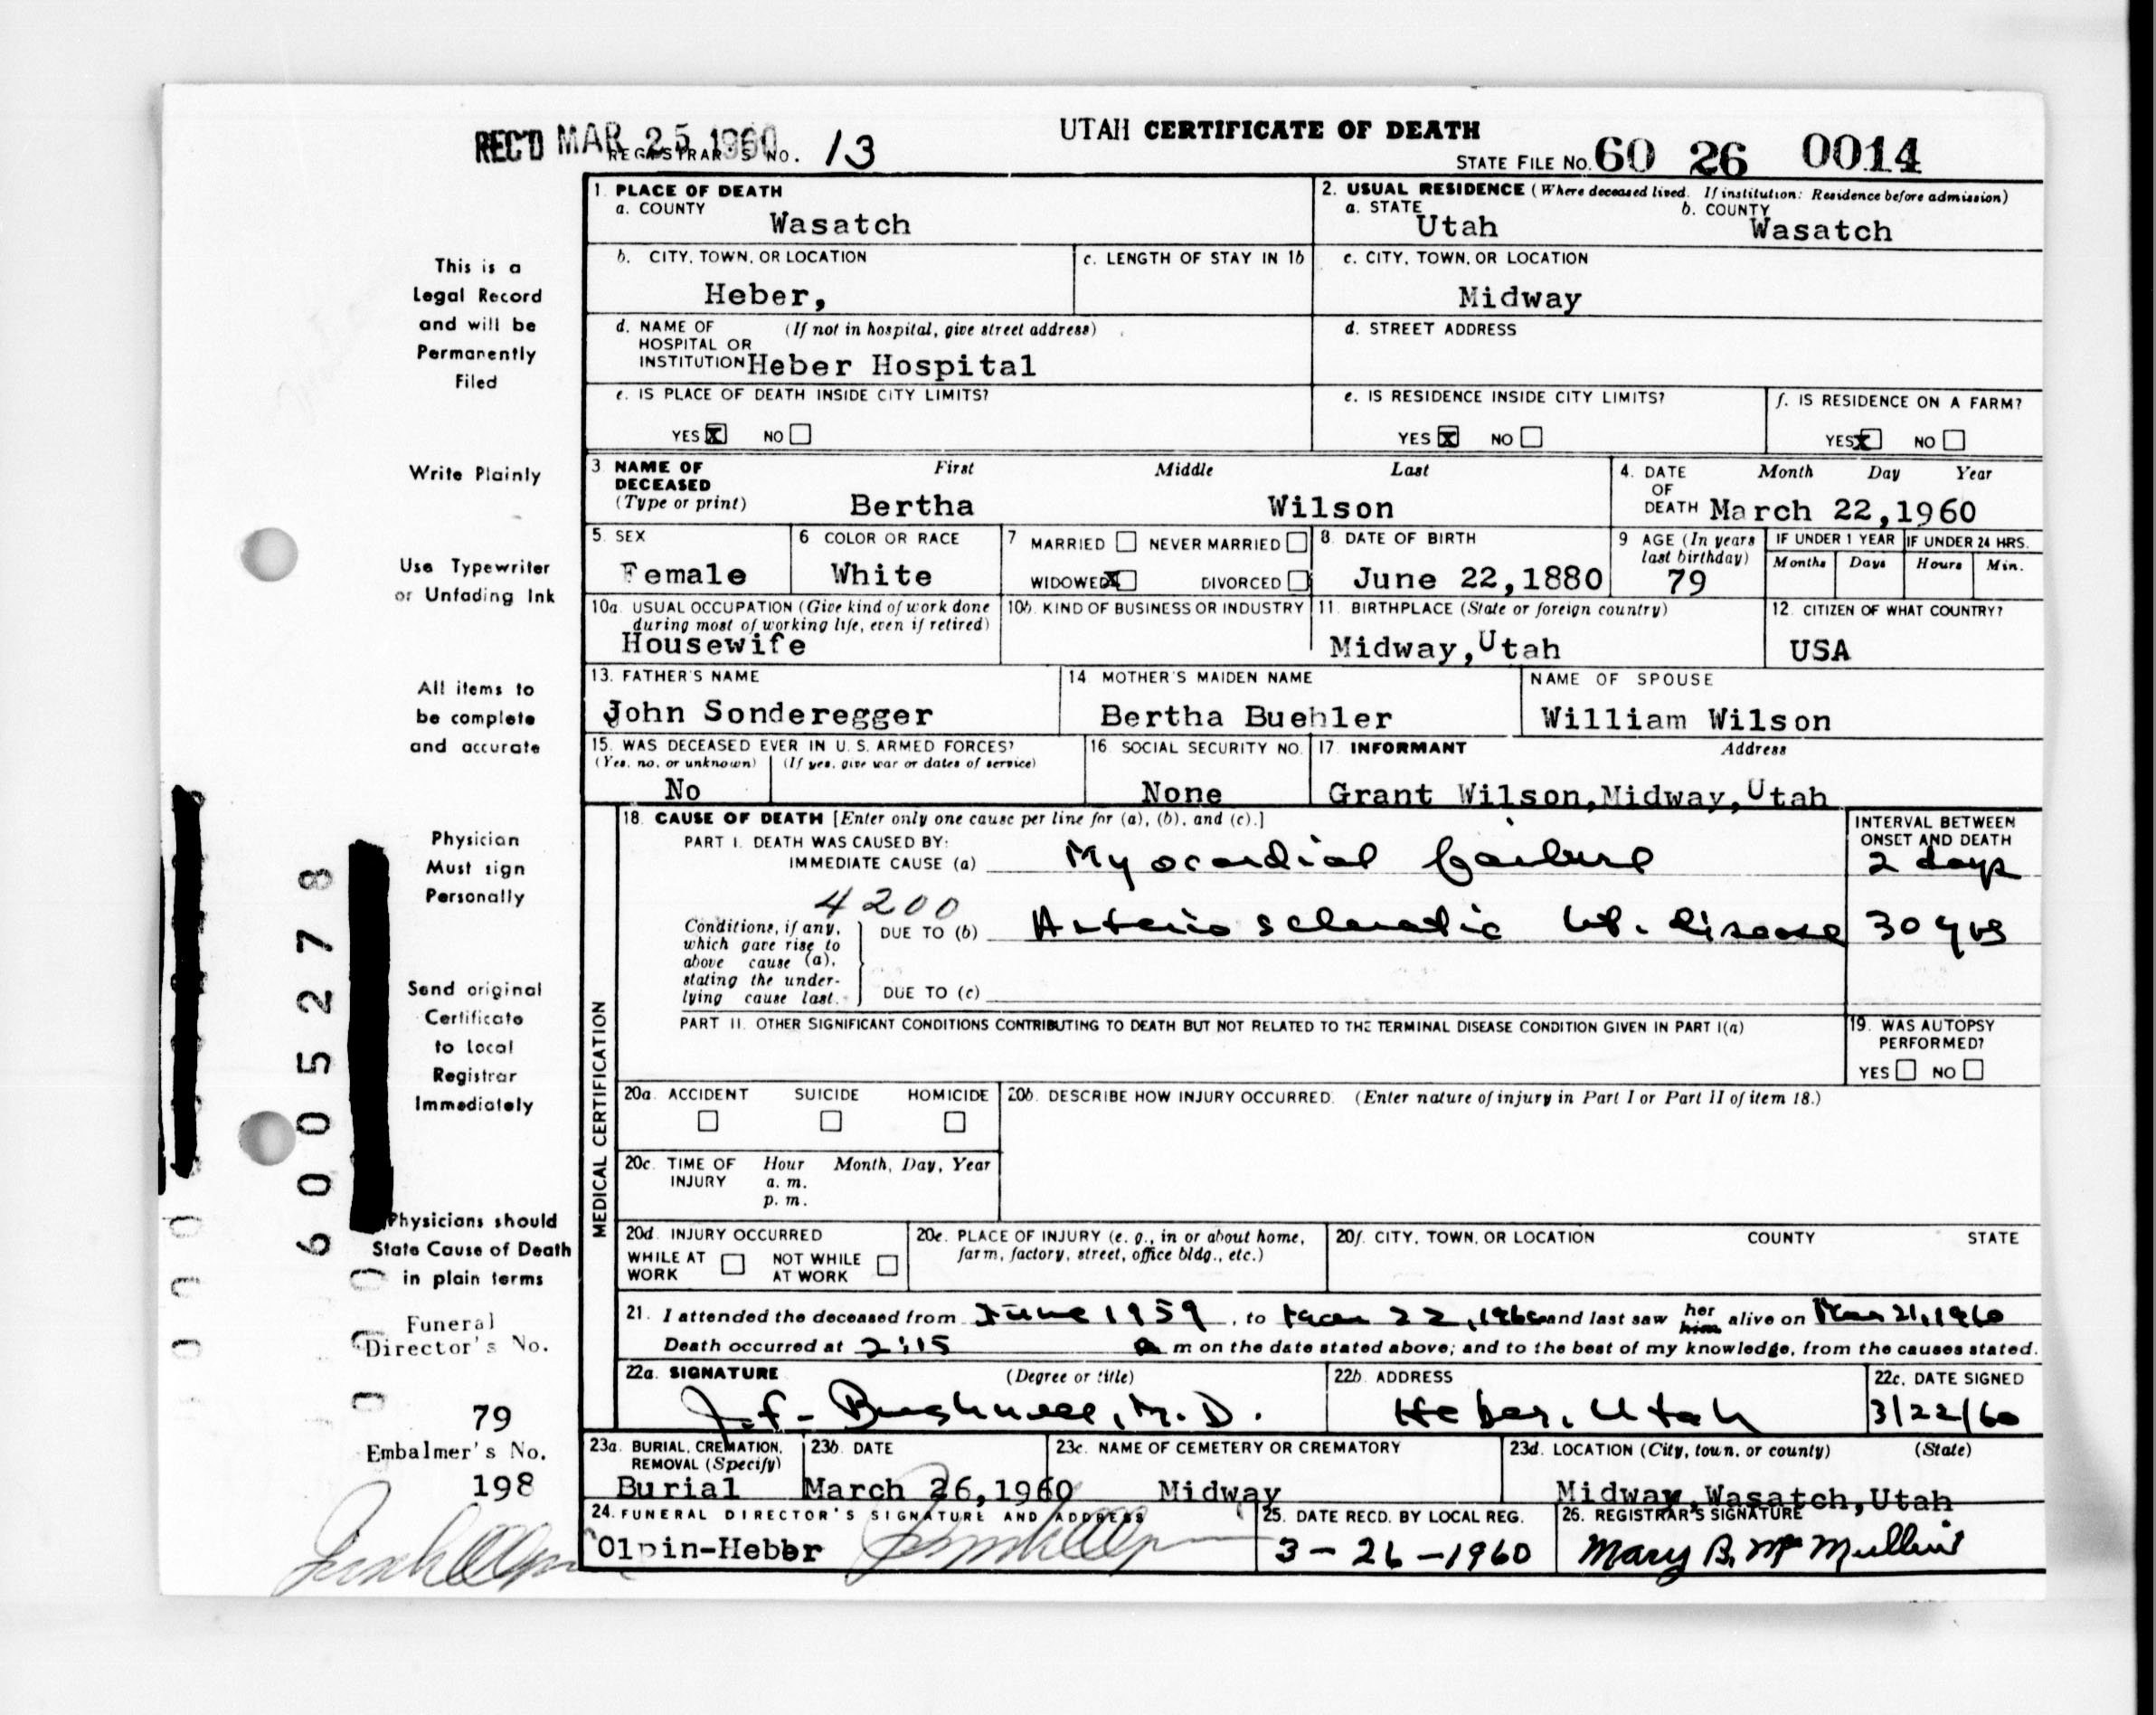 UTAH CERTIFICATE OF DEATH
REC'D MAR 25 1960
REGISTRAR'S NO. 13
STATE FILE NO. 60 26 0014
This is a
Legal Record
and will be
Permanently
Filed
Write Plainly
Use Typewriter
or Unfading Ink
All items to
be complete
and accurate
Physician
Must sign
Personally
Send original
Certificate
to Local
Registrar
Immediately
Physicians should
State Cause of Death
in plain terms
Funeral
Director's No.
79
Embalmer's No.
198
6005278
1. PLACE OF DEATH
a. COUNTY
Wasatch
2. USUAL RESIDENCE (Where deceased lived. If institution: Residence before admission)
a. STATE b. COUNTY
Utah Wasatch
b. CITY, TOWN, OR LOCATION
Heber,
c. LENGTH OF STAY IN 1b
c. CITY, TOWN, OR LOCATION
Midway
d. NAME OF (If not in hospital, give street address)
HOSPITAL OR
INSTITUTION Heber Hospital
d. STREET ADDRESS
e. IS PLACE OF DEATH INSIDE CITY LIMITS?
YES X NO
e. IS RESIDENCE INSIDE CITY LIMITS?
YES X NO
f. IS RESIDENCE ON A FARM?
YES X NO
3. NAME OF DECEASED First Middle Last
(Type or print) Bertha Wilson
4. DATE OF DEATH Month Day Year
March 22,1960
5. SEX
Female
6 COLOR OR RACE
White
7 MARRIED NEVER MARRIED
WIDOWED X DIVORCED
8. DATE OF BIRTH
June 22,1880
9 AGE (In years last birthday)
79
IF UNDER 1 YEAR IF UNDER 24 HRS.
Months Days Hours Min.
10a. USUAL OCCUPATION (Give kind of work done
during most of working life, even if retired)
Housewife
10b. KIND OF BUSINESS OR INDUSTRY
11. BIRTHPLACE (State or foreign country)
Midway,Utah
12. CITIZEN OF WHAT COUNTRY?
USA
13. FATHER'S NAME
John Sonderegger
14 MOTHER'S MAIDEN NAME
Bertha Buehler
NAME OF SPOUSE
William Wilson
15. WAS DECEASED EVER IN U.S. ARMED FORCES?
(Yes, no, or unknown) (If yes, give war or dates of service)
No
16 SOCIAL SECURITY NO.
None
17. INFORMANT Address
Grant Wilson,Midway,Utah
MEDICAL CERTIFICATION
18. CAUSE OF DEATH [Enter only one cause per line for (a), (b), and (c).]
INTERVAL BETWEEN
ONSET AND DEATH
PART I. DEATH WAS CAUSED BY:
IMMEDIATE CAUSE (a) Myocardial failure 2 days
4200
Conditions, if any,
which gave rise to
above cause (a),
stating the under-
lying cause last.
DUE TO (b) Arterio sclerotic ht. disease 30 yrs
DUE TO (c)
PART II. OTHER SIGNIFICANT CONDITIONS CONTRIBUTING TO DEATH BUT NOT RELATED TO THE TERMINAL DISEASE CONDITION GIVEN IN PART I(a)
19. WAS AUTOPSY
PERFORMED?
YES NO
20a. ACCIDENT SUICIDE HOMICIDE
20b. DESCRIBE HOW INJURY OCCURRED. (Enter nature of injury in Part I or Part II of item 18.)
20c. TIME OF INJURY Hour Month, Day, Year
a. m.
p. m.
20d. INJURY OCCURRED
WHILE AT WORK NOT WHILE AT WORK
20e. PLACE OF INJURY (e. g., in or about home,
farm, factory, street, office bldg., etc.)
20f. CITY, TOWN, OR LOCATION COUNTY STATE
21. I attended the deceased from June 1959, to Mar 22, 1960 and last saw her him alive on Mar 21, 1960
Death occurred at 2:15 a m on the date stated above; and to the best of my knowledge, from the causes stated.
22a. SIGNATURE (Degree or title)
J.F. Bushnell, M.D.
22b. ADDRESS
Heber, Utah
22c. DATE SIGNED
3/22/60
23a. BURIAL, CREMATION,
REMOVAL (Specify)
Burial
23b. DATE
March 26,1960
23c. NAME OF CEMETERY OR CREMATORY
Midway
23d. LOCATION (City, town, or county) (State)
Midway,Wasatch,Utah
24. FUNERAL DIRECTOR'S SIGNATURE AND ADDRESS
Olpin-Heber
25. DATE RECD. BY LOCAL REG.
3-26-1960
26. REGISTRAR'S SIGNATURE
Mary B. McMullin